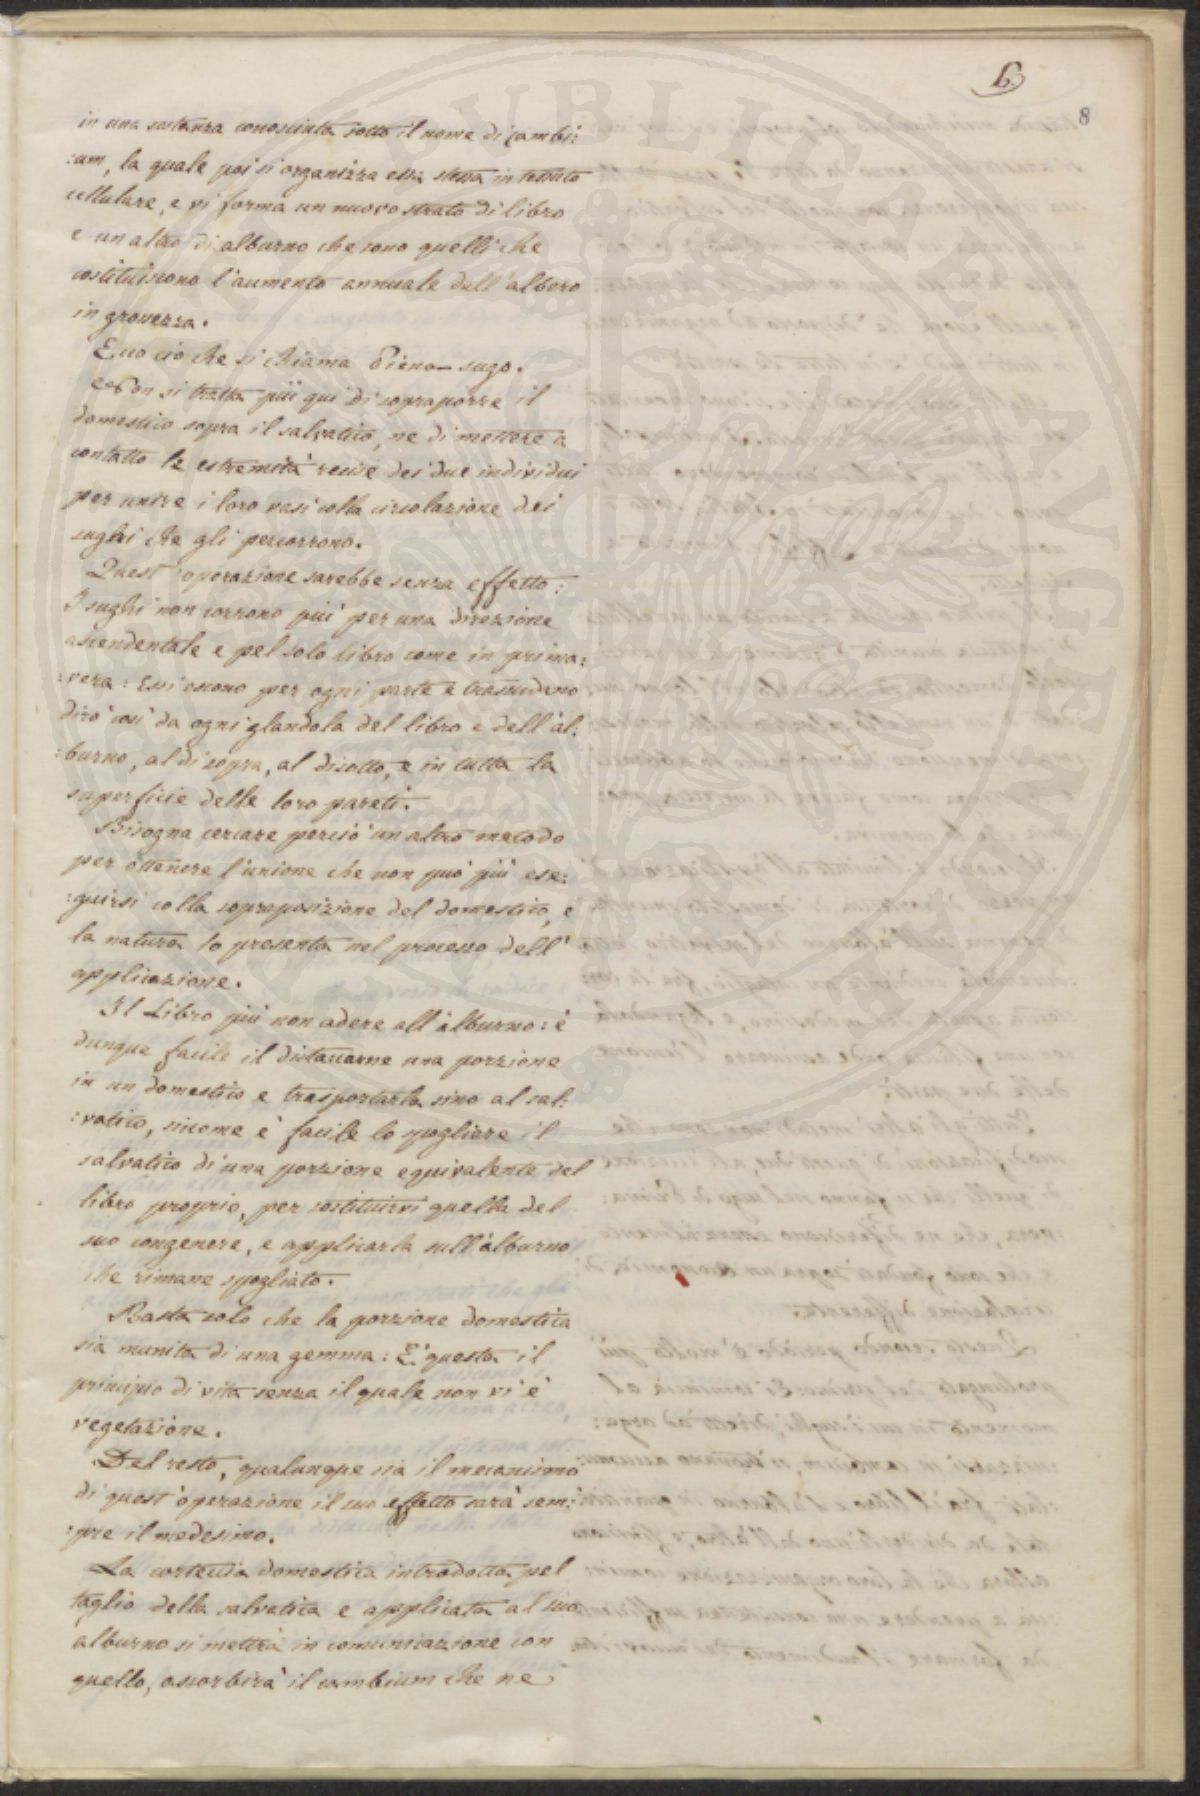 6.
8
in una sostanza conosciuta sotto il nome di cambi:
:um, la quale poi si organizza essa stessa in tessuto
cellulare, e vi forma un nuovo strato di libro
e un altro di alburno che sono quelli che
costituiscono l'aumento annuale dell'albero
in grossezza.
Ecco ciò che si chiama Pieno-sugo.
Non si tratta più qui di sopraporre il
domestico sopra il salvatico, ne di mettere a
contatto le estremità recise dei due individui
per unire i loro vasi colla circolazione dei
sughi che gli percorrono.
Quest'operazione sarebbe senza effetto:
I sughi non corrono più per una direzione
ascendentale e pel solo libro come in prima:
:vera: Essi escono per ogni parte e trasudano
dirò così da ogni glandola del libro e dell'al:
:burno, al di sopra, al disotto, e in tutta la
superficie delle loro pareti.
Bisogna cercare perciò un altro metodo
per ottenere l'unione che non può più ese:
:guirsi colla soprapposizione del domestico, e
la natura lo presenta nel processo dell'
applicazione.
Il Libro più non adere all'alburno: è
dunque facile il distaccarne una porzione
in un domestico e trasportarla sino al sal:
:vatico, siccome è facile lo spogliare il
salvatico di una porzione equivalente del
libro proprio, per sostituirvi quella del
suo congenere, e applicarla sull'alburno
che rimane spogliato.
Basta solo che la porzione domestica
sia munita di una gemma: E' questa il
principio di vita senza il quale non vi è
vegetazione.
Del resto, qualunque sia il mecanismo
di quest'operazione il suo effetto sarà sem:
:pre il medesimo.
La corteccia domestica introdotta pel
taglio della salvatica e applicata al suo
alburno si metterà in comunicazione con
quello, assorbirà il cambium che ne